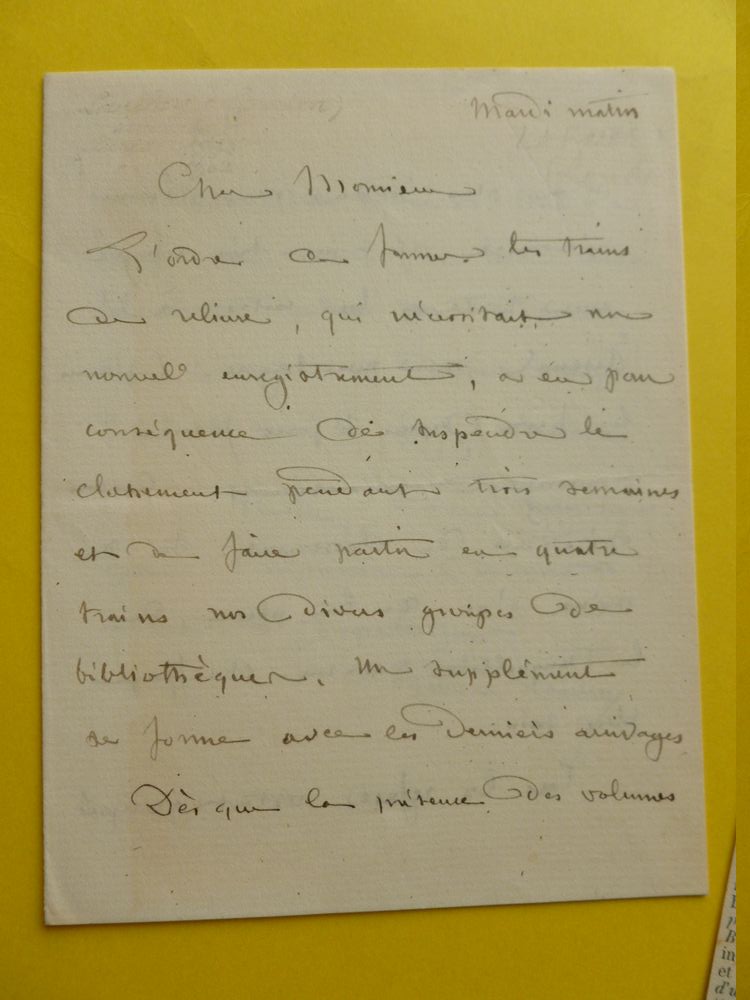 Mardi matin
Cher Monsieur
L'ordre de former les trains
de reliure, qui nécessitait un
nouvel enregistrement, a eu pour
conséquence de suspendre le
classement pendant trois semaines
et de faire partir en quatre
trains nos divers groupes de
bibliothèques. Un supplément
se forme avec les derniers arrivages
Dès que la présence des volumes
B
in
et
d'u